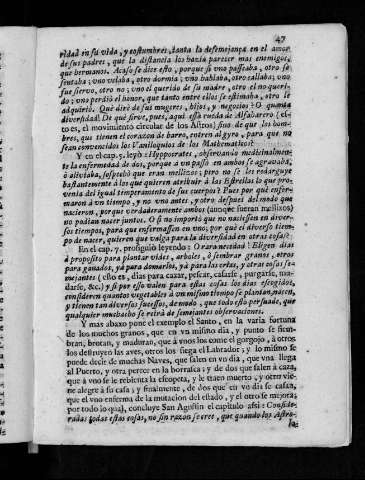 47
ridad en su vida, y costumbres, tanta la desemejança en el amor
de sus padres, que la distancia los hazia parecer mas enemigos,
que hermanos. Acaso se dize esto, porque si vno passeaba, otro se
sentaba; vno velaba, otro dormia; vno hablaba, otro callaba; vno
fue siervo, otro no; vno el querido de su madre, otro el no queri-
do; vno perdiò el honor, que tanto entre ellos se estimaba, otro le
adquiriò. Què dirè de sus mugeres, hijos, y negocios? O quanta
diversidad! De què sirve, pues, aqui essa rueda de Alfaharero (es-
to es, el movimiento circular de los Astros) sino de que los hom-
bres, que tienen el corazon de barro, rueden al gyro, para que no
sean convencidos los Vaniloquios de los Mathematicos?
Y en el cap. 5. leyò: Hyppocrates, observando medicinalmen-
te la enfermedad de dos, porque à vn passo en ambos se agravaba,
ò aliviaba, sospechò que eran mellizos; pero no se les redarguye
bastantemente à los que quieren atribuir à las Estrellas lo que pro-
venia del igual temperamento de sus cuerpos? Pues por què enfer-
maron à vn tiempo, y no vno antes, y otro despues del modo que
nacieron, porque verdaderamente ambos (aunque fueran mellizos)
no podian nacer juntos. O si no importò que naciessen en diver-
sos tiempos, para que enfermassen en vno; por què à diverso tiem-
po de nacer, quieren que valga para la diversidad en otras cosas?
En el cap. 7. prosiguiò leyendo: O rara necedad! Eligen dias
à proposito para plantar vides, arboles, ò sembrar granos, otros
para ganados, yà para domarlos, yà para las crias, y otras cosas se-
mejantes (esto es, dias para cazar, pescar, casarse, purgarse, mu-
darse, &c.) y si por esso valen para estas cosas los dias escogidos,
consideren quantos vegetables à vn mismo tiempo se plantan, nacen,
y tienen tan diversos sucessos, de modo, que todo esto persuade, que
qualquier muchacho se reirà de semejantes observaciones.
Y mas abaxo pone el exemplo el Santo, en la varia fortuna
de los muchos granos, que en vn mismo dia, y punto se siem-
bran, brotan, y maduran, que à vnos los come el gorgojo, à otros
los destruyen las aves, otros los siega el Labrador; y lo mismo se
puede decir de muchas Naves, que salen en vn dia, que vna llega
al Puerto, y otra perece en la borrasca; y de dos que salen à caza,
que à vno se le rebienta la escopeta, y le traen muerto, y otro vie-
ne alegre à su casa; y finalmente, de dos que en vn dia se casan,
que el vno enferma de la mutacion del estado, y el otro se mejora;
por todo lo qual, concluye San Agustin el capitulo assi: Conside-
radas todas estas cosas, no sin razon se cree, que quando los Astro-
lo-